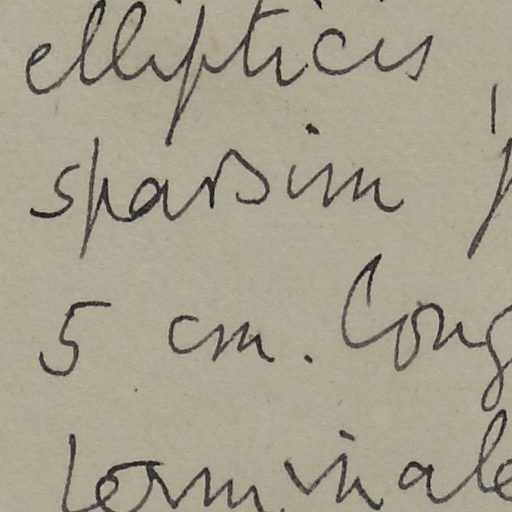 ellipticis,
sparsim
5 cm. long
terminale